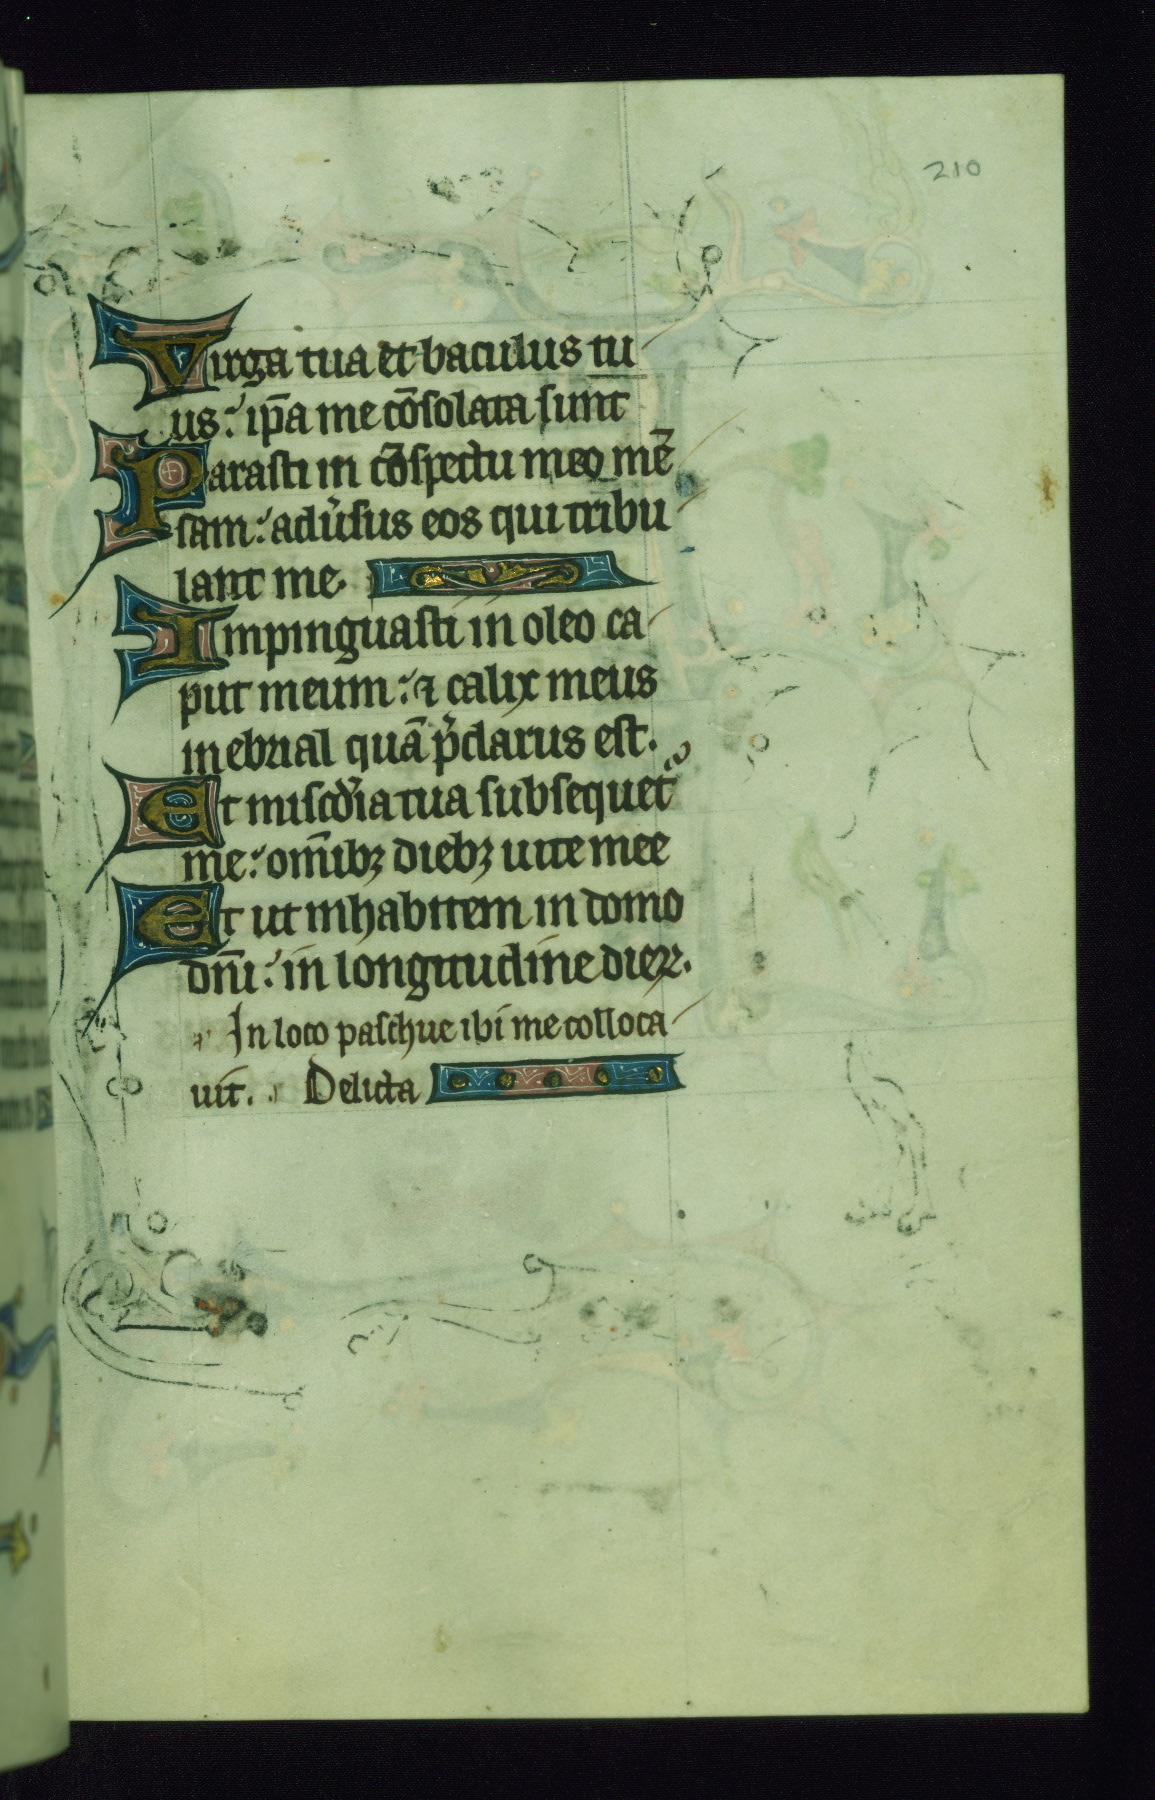 210
Virga tua et baculus tu
us: ip̄a me cōsolata sunt
Parasti in cōspectu meo mē
sam: adu̓sus eos qui tribu
lant me.
Impinguasti in oleo ca
put meum: ⁊ calix meus
inebrial quā p̓clarus est.
Et misc̓dia tua subsequet᷑
me: om̄ibꝫ diebꝫ uite mee
Et ut inhabitem in domo
dn̄i: in longitudine dieꝝ.
In loco paschue ibi me colloca
uit. Delicta